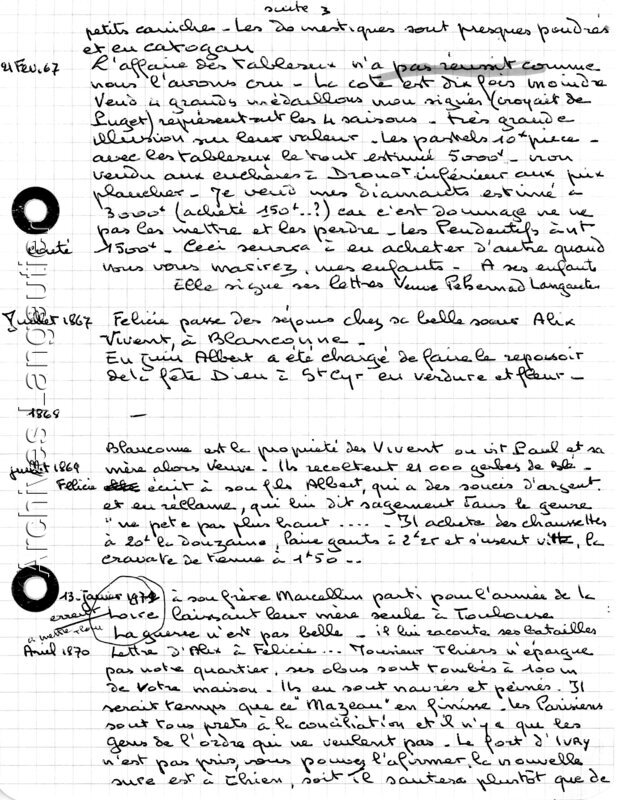 suite 3
petits caniches - Les domestiques sont presques poudrés
et en catogan
21 Fev. 67 L'affaire des tableaux n'a pas réussit comme
nous l'avons cru - La cote est dix fois moindre
Vend 4 grands médaillons non signés (croyait de
Puget) représentant les 4 saisons - très grande
illusion sur leur valeur - Les pastels 10f pièce -
avec les tableaux le tout estimé 5000f - non
vendu aux enchères à Drouot inférieur aux prix
plancher - Je vend mes diamants estimé à
3000f (acheté 150f..?) car c'est dommage ne ne
pas les mettre et les perdre - Les Pendentifs à
1500f - Ceci servira à en acheter d'autre quand
vous vous marirez, mes enfants - A ses enfants
Elle signe ses lettres Veuve Langautier
Juillet 1867 Felicie passe des séjours chez sa belle soeur Alix
Vivent, à Blanconne -
En Juin Albert a été chargé de faire le reposoir
de la fête Dieu à St Cyr en verdure et fleur -
1869 -
Blanconne est la propriété des Vivent ou vit Paul et sa
juillet 1869 mère alors veuve - Ils recoltent 21 000 gerbes de Blé -
Félicie écrit à son fils Albert, qui a des soucis d'argent
et en réclame, qui lui dit sagement dans le genre
"ne pete pas plus haut .... - Il achete des chaussettes
à 20f la douzaine, paire gants à 2f25 et s'usent vite, la
cravate de tenue à 1f50 --
13 Janvier à son frère Marcellin parti pour l'armée de la
erreur Loire laissant leur mère seule à Toulouse
La guerre n'est pas belle - il lui raconte ses batailles
Avril 1870 Lettre d'Alix à Félicie ... Monsieur Thiers n'épargne
pas notre quartier, ses obus sont tombés à 100m
de votre maison - Ils en sont navrés et peinés. Il
serait temps que ce "Mazeau" en finisse - les Parisiens
sont tous prets à la conciliation et il n'y a que les
gens de l'ordre qui ne veulent pas - Le fort d'IVRY
n'est pas pris, vous pouvez l'afirmer, la nouvelle
sure est à Thien, soit il sautera plutôt que de
Archives Langautier